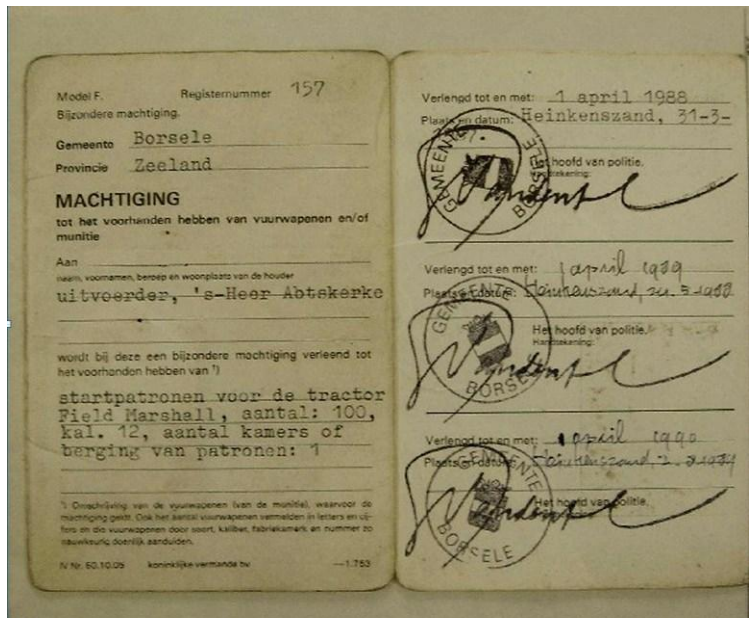 Model F. Registernummer 157
Bijzondere machtiging.
Gemeente Borsele
Provincie Zeeland
MACHTIGING
tot het voorhanden hebben van vuurwapenen en/of
munitie
Aan
naam, voornamen, beroep en woonplaats van de houder
uitvoerder, 's-Heer Abtskerke
wordt bij deze een bijzondere machtiging verleend tot
het voorhanden hebben van ¹)
startpatronen voor de tractor
Field Marshall, aantal: 100,
kal. 12, aantal kamers of
berging van patronen: 1
¹) Omschrijving van de vuurwapenen (van de munitie), waarvoor de
machtiging geldt. Ook het aantal vuurwapenen vermelden in letters en cij-
fers en die vuurwapenen door soort, kaliber, fabrieksmerk en nummer zo
nauwkeurig doenlijk aanduiden.
IV Nr. 60.10.05 koninklijke vermande bv —1.753
Verlengd tot en met: 1 april 1988
Plaats en datum: Heinkenszand, 31-3-
Het hoofd van politie.
Handtekening:
GEMEENTE BORSELE
Verlengd tot en met: 1 april 1989
Plaats en datum: Heinkenszand,
Het hoofd van politie.
Handtekening:
GEMEENTE BORSELE
Verlengd tot en met: 1 april 1990
Plaats en datum: Heinkenszand,
Het hoofd van politie.
GEMEENTE BORSELE